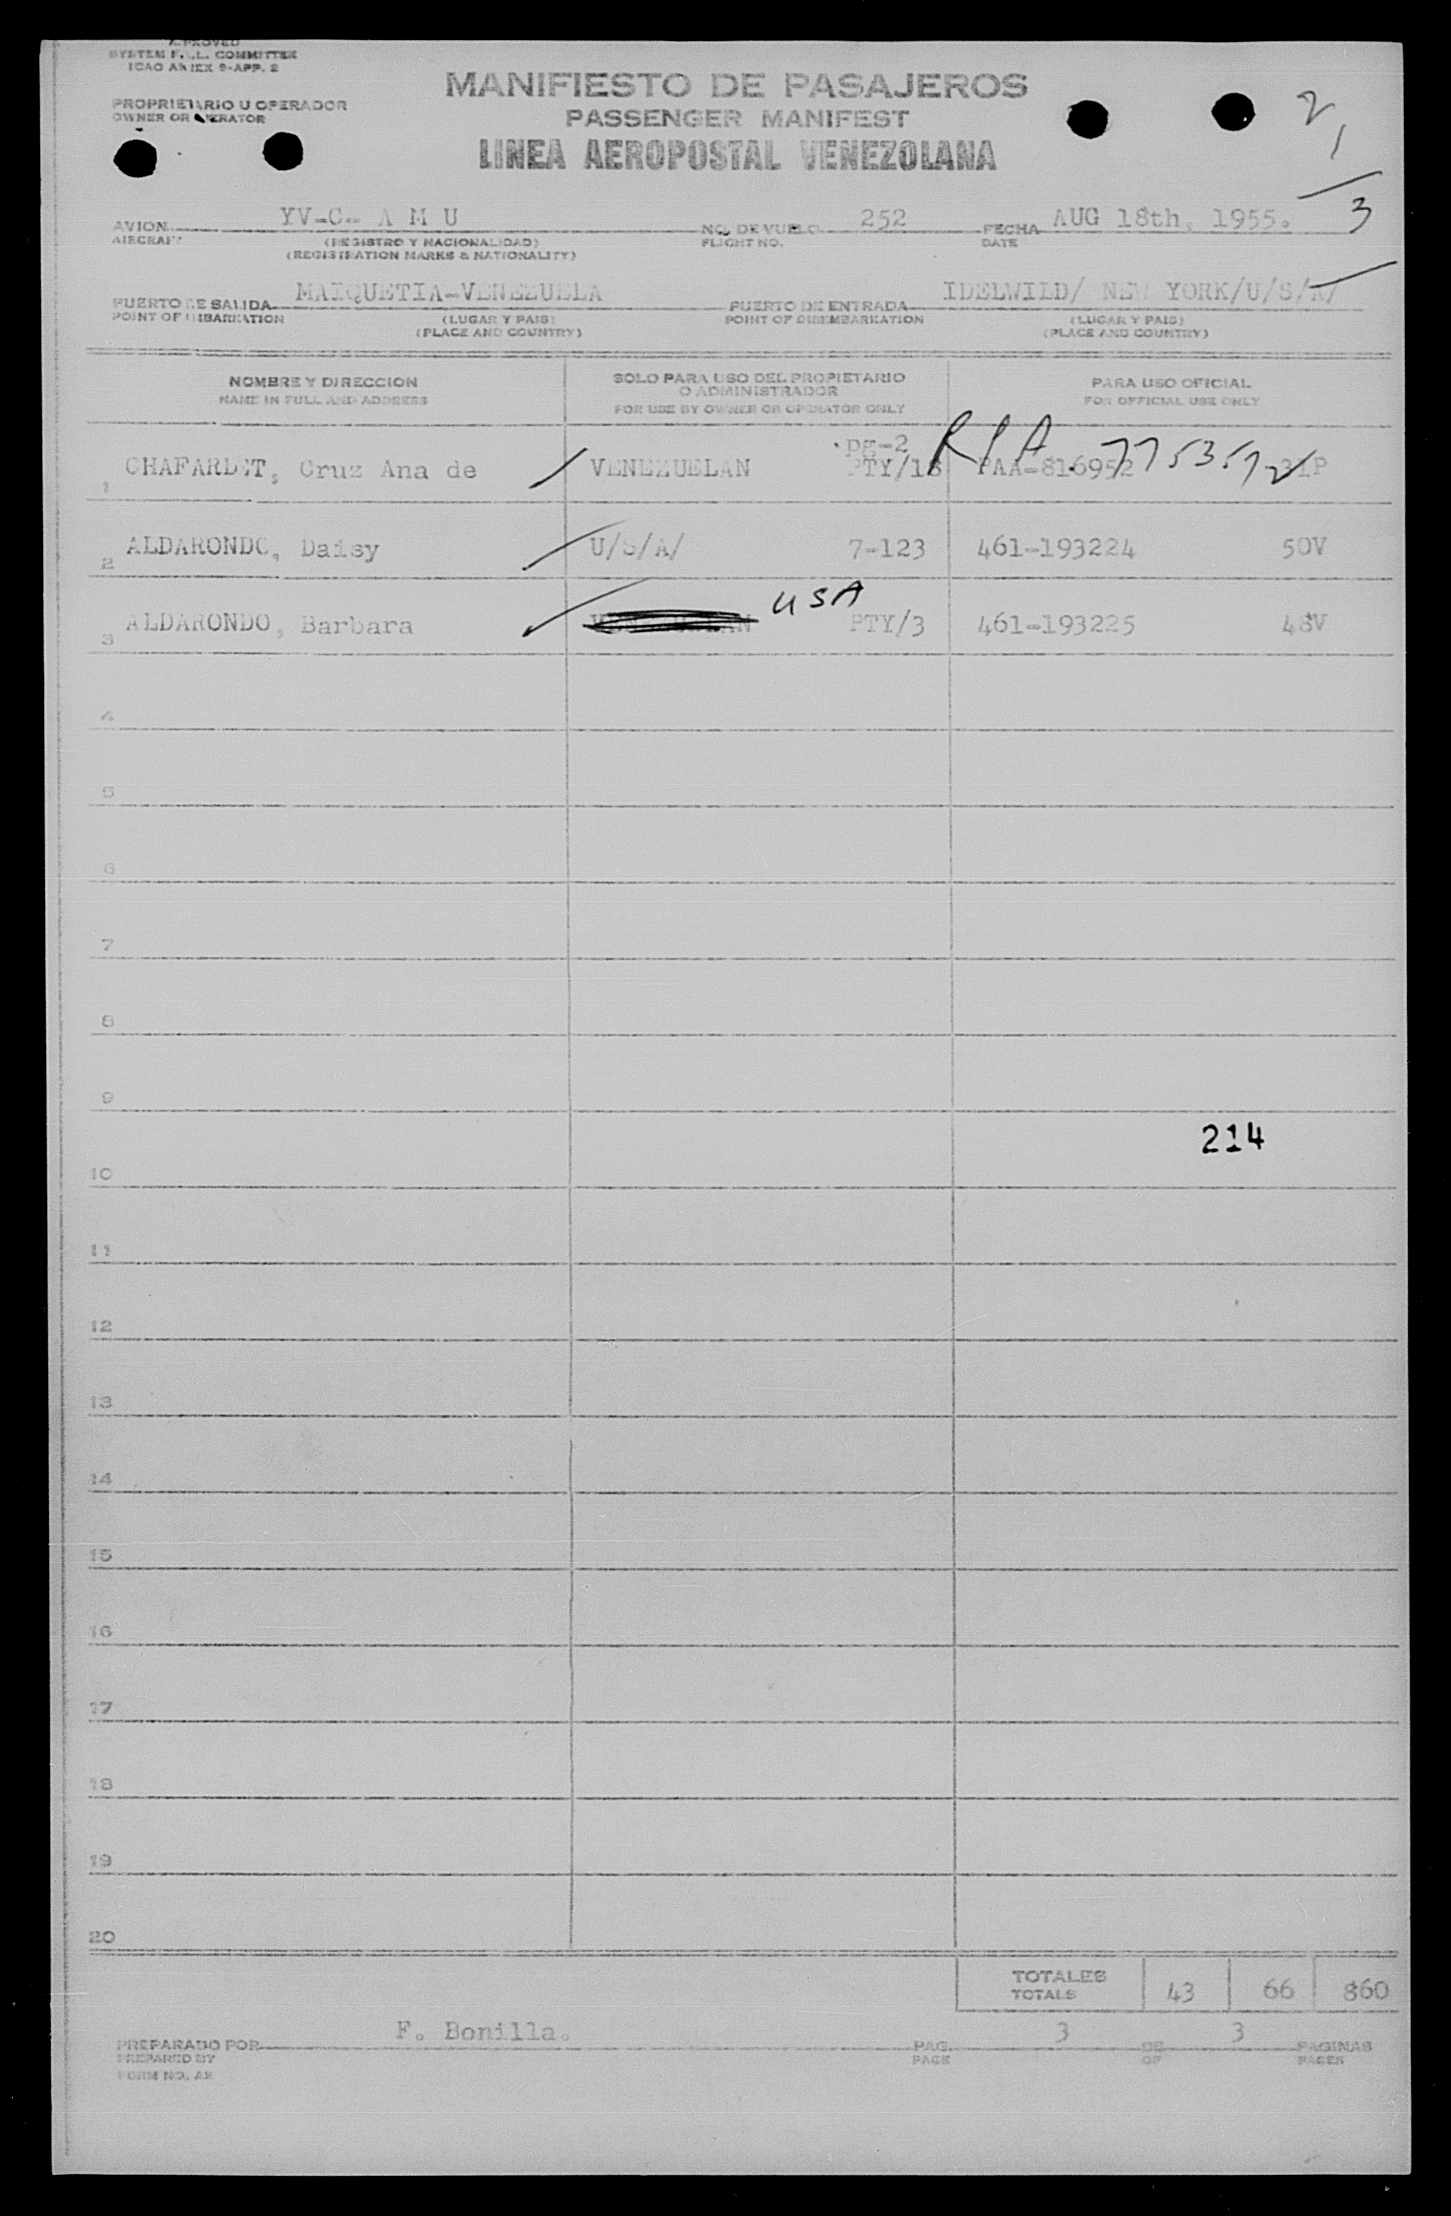 APPROVED
SYSTEM F.A.L. COMMITTEE
ICAO ANNEX 9-APP. 2
MANIFIESTO DE PASAJEROS
PROPRIETARIO U OPERADOR
OWNER OR OPERATOR
PASSENGER MANIFEST
LINEA AEROPOSTAL VENEZOLANA
2
1
3
AVION YV-C- A M U NO. DE VUELO 252 FECHA AUG 18th, 1955.
AIRCRAFT (REGISTRO Y NACIONALIDAD) FLIGHT NO. DATE
(REGISTRATION MARKS & NATIONALITY)
PUERTO DE SALIDA MAIQUETIA-VENEZUELA PUERTO DE ENTRADA IDELWILD/ NEW YORK/U/S/A/
POINT OF EMBARKATION (LUGAR Y PAIS) POINT OF DISEMBARKATION (LUGAR Y PAIS)
(PLACE AND COUNTRY) (PLACE AND COUNTRY)
NOMBRE Y DIRECCION SOLO PARA USO DEL PROPIETARIO PARA USO OFICIAL
NAME IN FULL AND ADDRESS O ADMINISTRADOR FOR OFFICIAL USE ONLY
FOR USE BY OWNER OR OPERATOR ONLY
pg-2 77535
1 CHAFARDET, Cruz Ana de VENEZUELAN PTY/18 PAA-816952 31P
2 ALDARONDO, Daisy U/S/A/ 7-123 461-193224 50V
USA
3 ALDARONDO, Barbara PTY/3 461-193225 48V
4
5
6
7
8
9
214
10
11
12
13
14
15
16
17
18
19
20
TOTALES
TOTALS 43 66 860
PREPARADO POR F. Bonilla. PAG. 3 DE 3 PAGINAS
PREPARED BY PAGE OF PAGES
FORM NO. AR